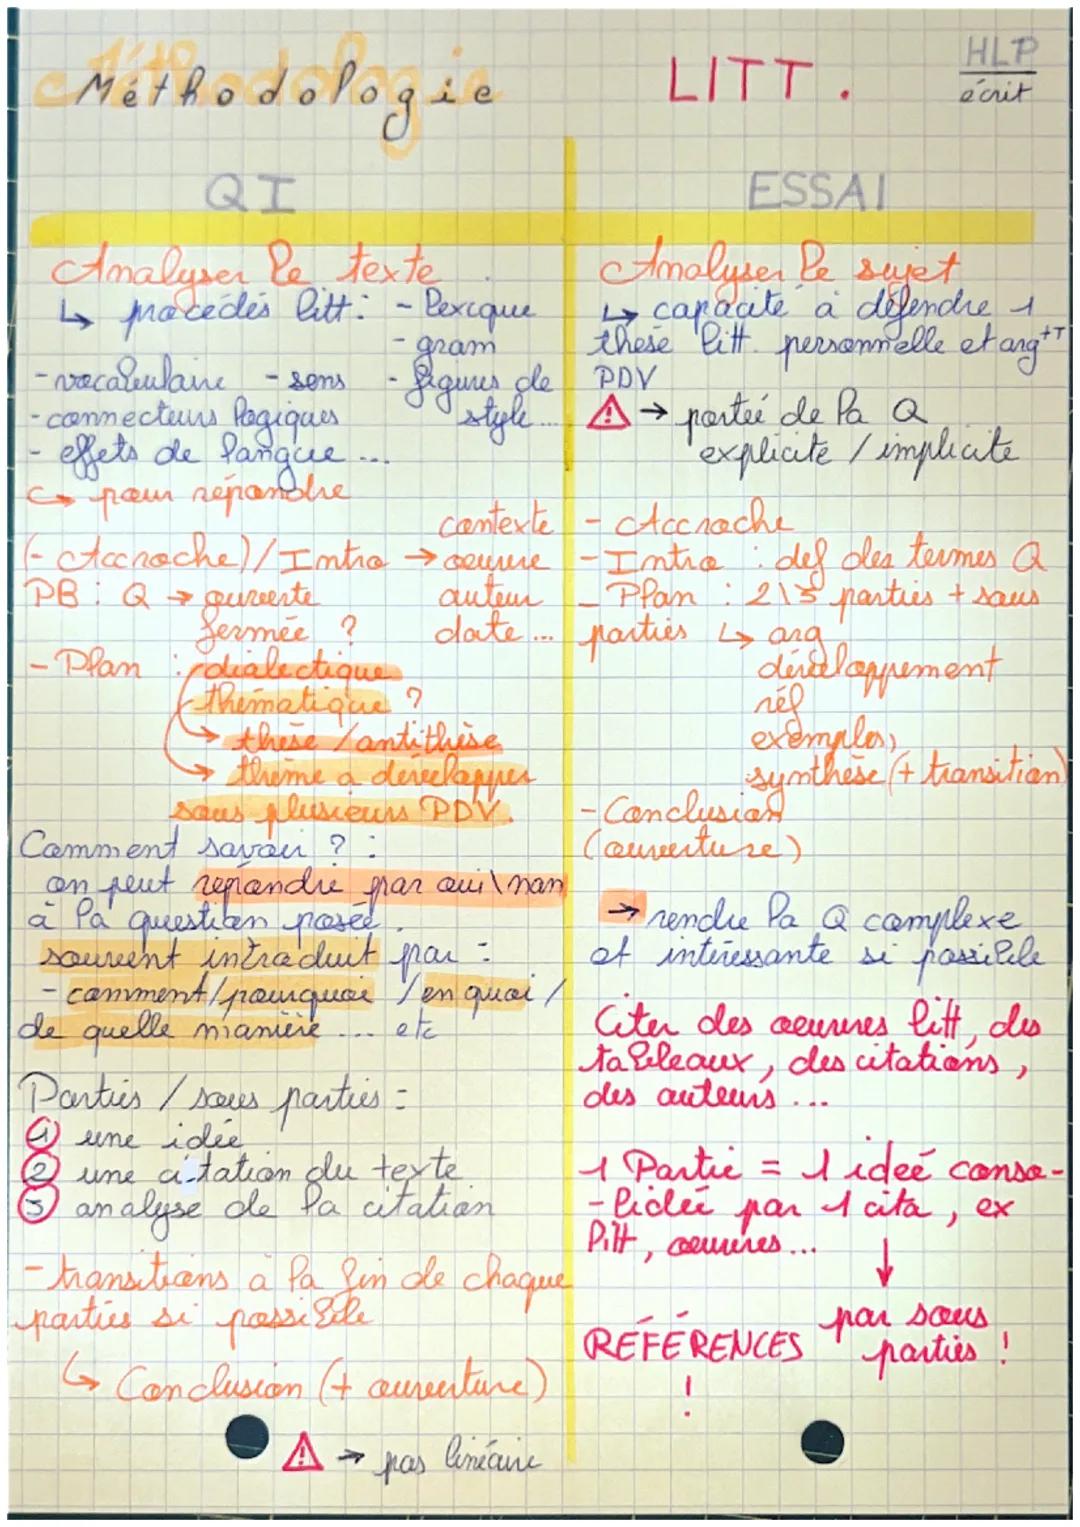 Méthodologie
LITT.
HLP
écrit
QI
Analyser le texte
↳ procédés litt : - lexique
- gram
- vocabulaire - sens - figures de
- connecteurs logiques style ...
- effets de langue ...
↳ pour répondre
(- Accroche) / Intro → contexte
oeuvre
auteur
date ...
PB : Q → ouverte
fermée ?
- Plan : dialectique
thématique ?
→ thèse / antithèse
→ thème à développer
sous plusieurs PDV.
Comment savoir ? :
on peut répondre par oui \ non
à la question posée.
souvent introduit par :
- comment / pourquoi / en quoi /
de quelle manière ... etc
Parties / sous parties :
① une idée
② une citation du texte
③ analyse de la citation
- transitions à la fin de chaque
parties si possible
↳ Conclusion (+ ouverture)
⚠ → pas linéaire
ESSAI
Analyser le sujet
↳ capacité à défendre 1
thèse litt. personnelle et arg+T
PDV
⚠ → portée de la Q
explicite / implicite
- Accroche
- Intro : def des termes Q
- Plan : 2\3 parties + sous
parties ↳ arg
développement
réf
exemples,
synthèse (+ transition)
- Conclusion
(ouverture)
→ rendre la Q complexe
et intéressante si possible
Citer des oeuvres litt, des
tableaux, des citations,
des auteurs ...
1 Partie = 1 ideé conso-
- lidée par 1 cita, ex
litt, oeuvres ...
↓
RÉFÉRENCES par sous
! parties !